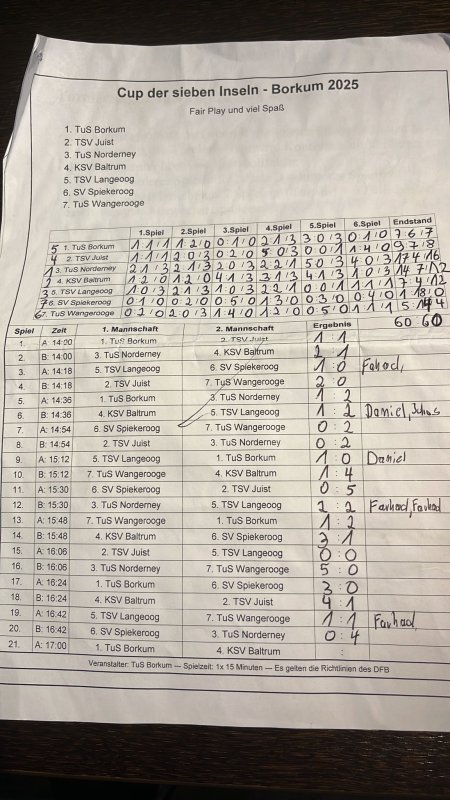 Cup der sieben Inseln - Borkum 2025
Fair Play und viel Spaß
1. TuS Borkum
2. TSV Juist
3. TuS Norderney
4. KSV Baltrum
5. TSV Langeoog
6. SV Spiekeroog
7. TuS Wangerooge
1.Spiel 2.Spiel 3.Spiel 4.Spiel 5.Spiel 6.Spiel Endstand
5 1. TuS Borkum 1 : 1 1 1 : 2 0 0 : 1 0 2 : 1 3 3 : 0 3 0 : 1 0 7 : 6 7
4 2. TSV Juist 1 : 1 1 2 : 0 3 0 : 2 0 5 : 0 3 0 : 0 1 1 : 4 0 9 : 7 8
1 3. TuS Norderney 2 : 1 3 2 : 1 3 2 : 0 3 2 : 2 1 5 : 0 3 4 : 0 3 17 : 4 16
2 4. KSV Baltrum 1 : 2 0 1 : 2 0 4 : 1 3 3 : 1 3 4 : 1 3 1 : 0 3 14 : 7 12
3 5. TSV Langeoog 1 : 0 3 2 : 1 3 1 : 0 3 2 : 2 1 0 : 0 1 1 : 1 1 7 : 4 12
7 6. SV Spiekeroog 0 : 1 0 0 : 2 0 0 : 5 0 1 : 3 0 0 : 3 0 0 : 4 0 1 : 18 0
6 7. TuS Wangerooge 0 : 2 0 2 : 0 3 1 : 4 0 1 : 2 0 0 : 5 0 1 : 1 1 5 : 14 4
Spiel Zeit 1. Mannschaft 2. Mannschaft Ergebnis 60 60
1. A: 14:00 1. TuS Borkum 2. TSV Juist 1 : 1
2. B: 14:00 3. TuS Norderney 4. KSV Baltrum 2 : 1
3. A: 14:18 5. TSV Langeoog 6. SV Spiekeroog 1 : 0 Fahad,
4. B: 14:18 2. TSV Juist 7. TuS Wangerooge 2 : 0
5. A: 14:36 1. TuS Borkum 3. TuS Norderney 1 : 2
6. B: 14:36 4. KSV Baltrum 5. TSV Langeoog 1 : 2 Daniel,
7. A: 14:54 6. SV Spiekeroog 7. TuS Wangerooge 0 : 2
8. B: 14:54 2. TSV Juist 3. TuS Norderney 0 : 2
9. A: 15:12 5. TSV Langeoog 1. TuS Borkum 1 : 0 Daniel
10. B: 15:12 7. TuS Wangerooge 4. KSV Baltrum 1 : 4
11. A: 15:30 6. SV Spiekeroog 2. TSV Juist 0 : 5
12. B: 15:30 3. TuS Norderney 5. TSV Langeoog 2 : 2 Farhad, Farhad
13. A: 15:48 7. TuS Wangerooge 1. TuS Borkum 1 : 2
14. B: 15:48 4. KSV Baltrum 6. SV Spiekeroog 3 : 1
15. A: 16:06 2. TSV Juist 5. TSV Langeoog 0 : 0
16. B: 16:06 3. TuS Norderney 7. TuS Wangerooge 5 : 0
17. A: 16:24 1. TuS Borkum 6. SV Spiekeroog 3 : 0
18. B: 16:24 4. KSV Baltrum 2. TSV Juist 4 : 1
19. A: 16:42 5. TSV Langeoog 7. TuS Wangerooge 1 : 1 Farhad,
20. B: 16:42 6. SV Spiekeroog 3. TuS Norderney 0 : 4
21. A: 17:00 1. TuS Borkum 4. KSV Baltrum :
Veranstalter: TuS Borkum --- Spielzeit: 1x 15 Minuten --- Es gelten die Richtlinien des DFB